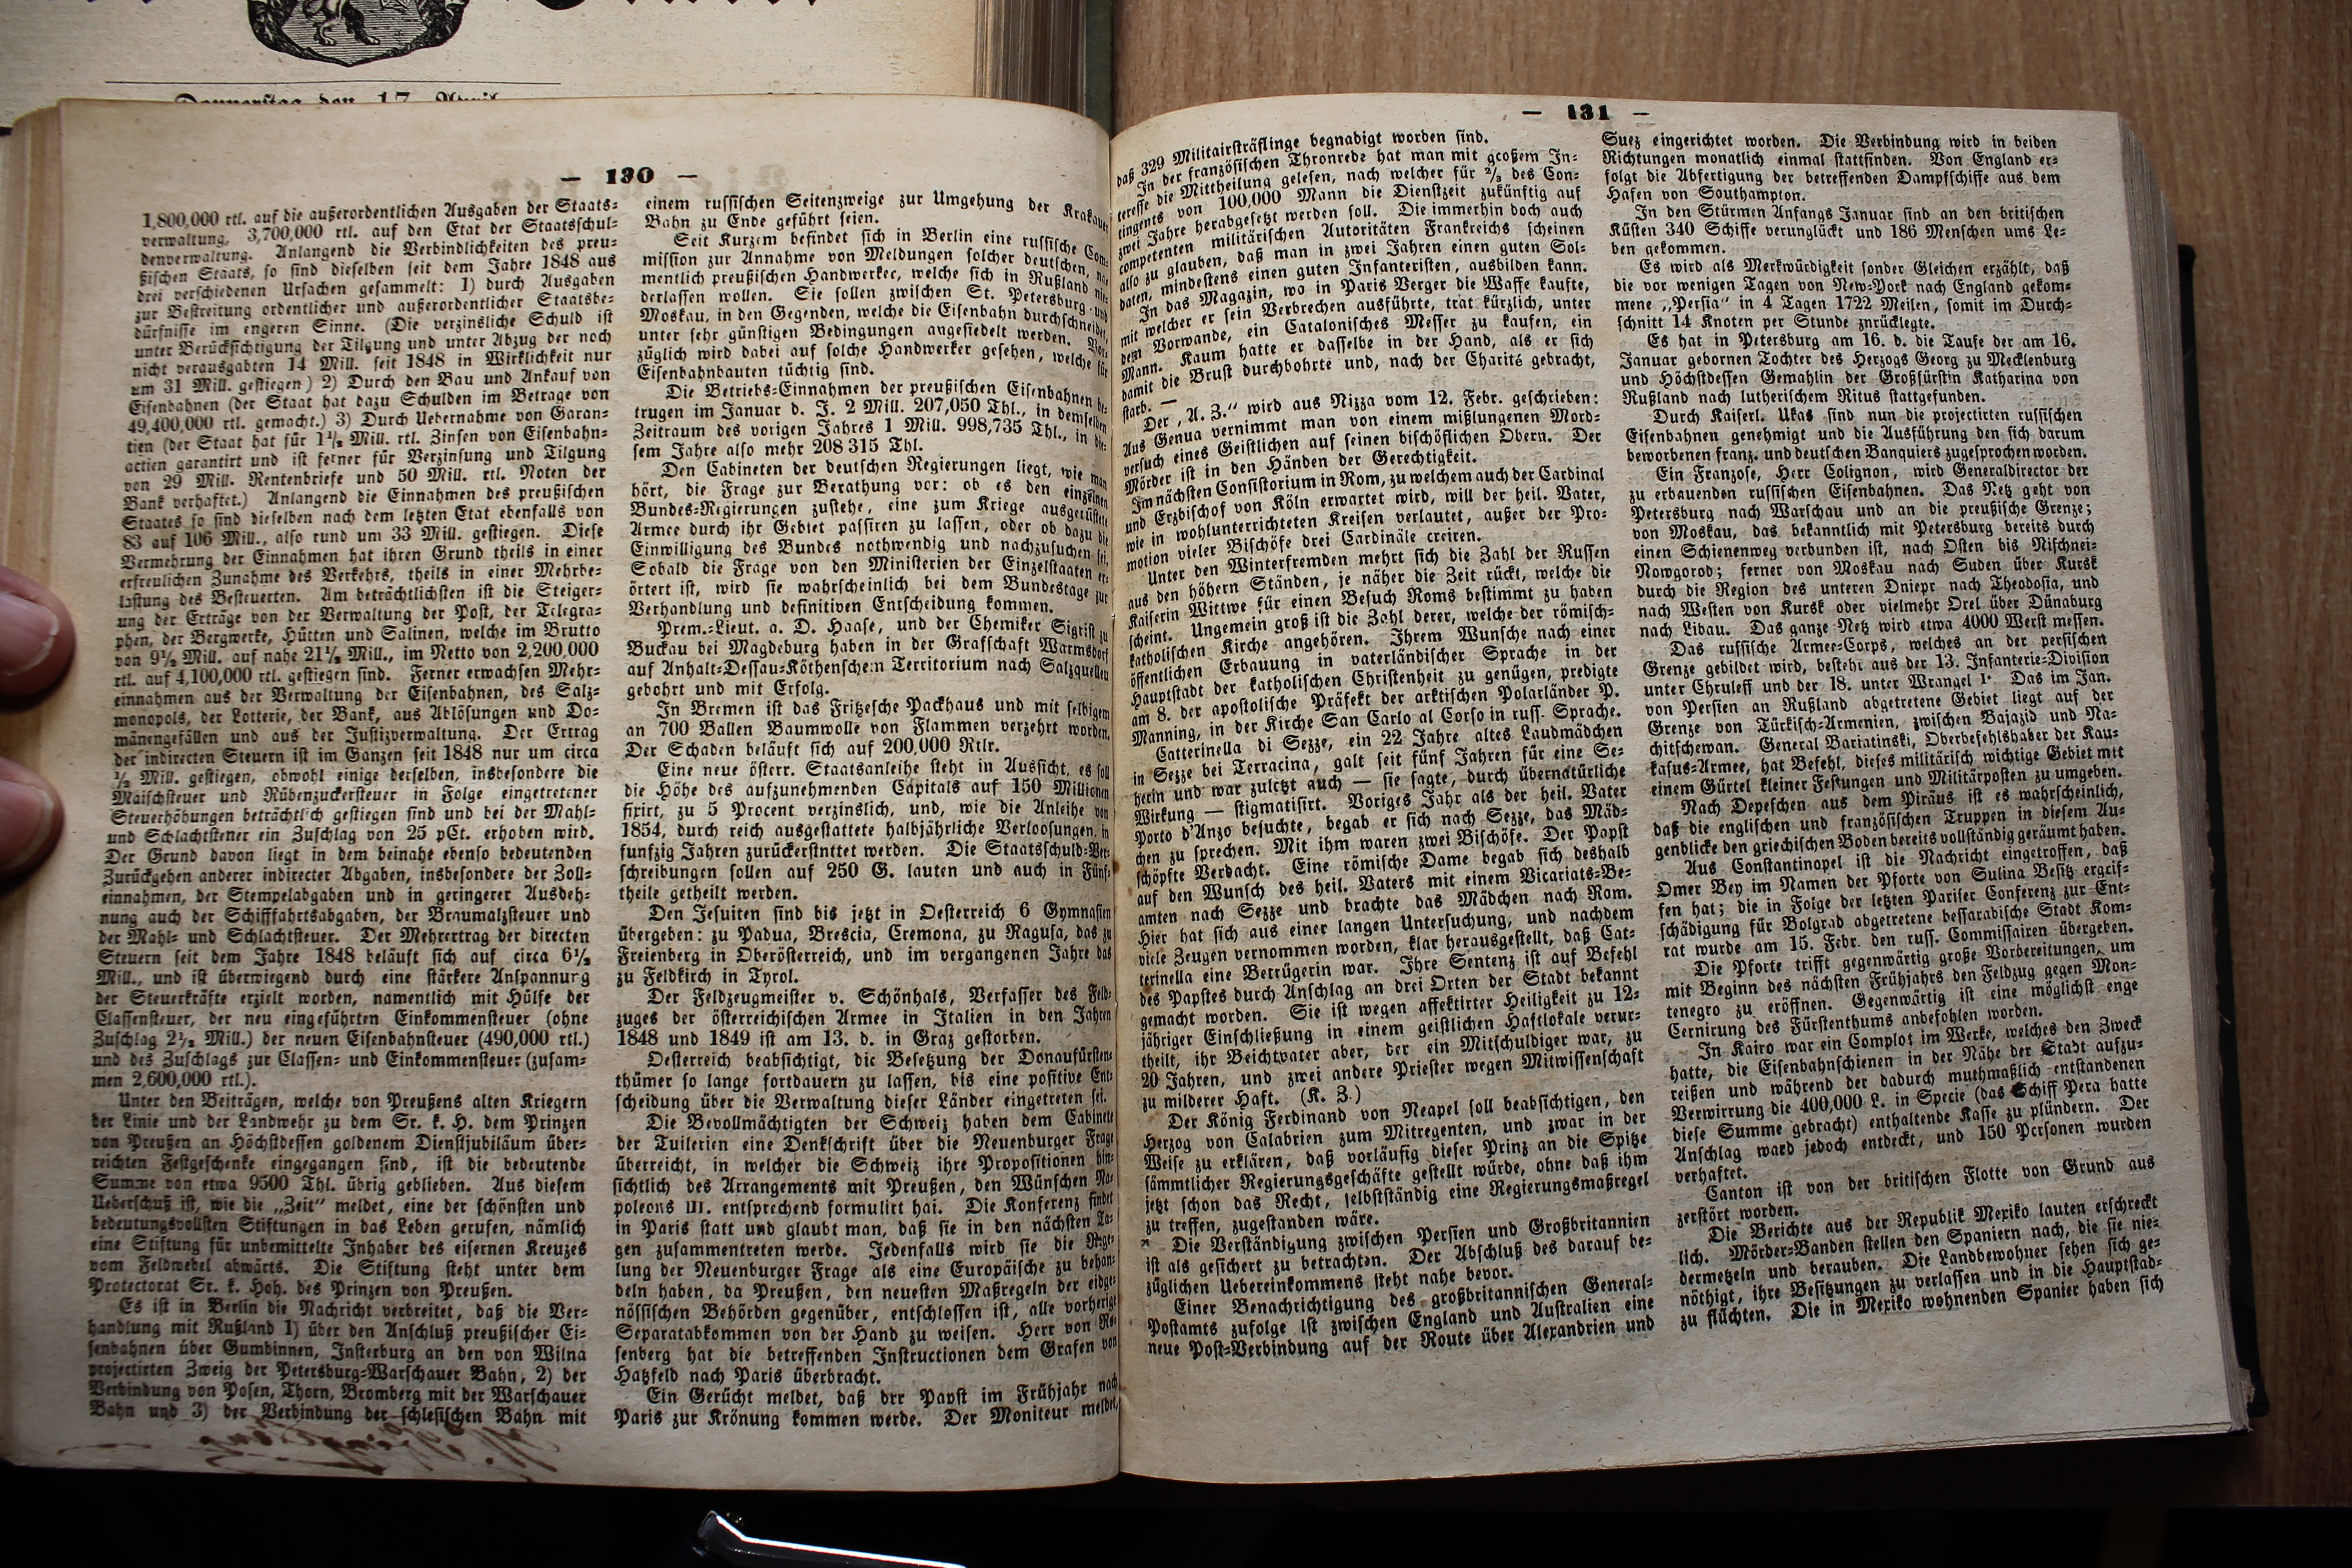 Donnerstag den 17. April
— 130 —
1,800,000 rtl. auf die außerordentlichen Ausgaben der Staats-
verwaltung, 3,700,000 rtl. auf den Etat der Staatsschul-
denverwaltung. Anlangend die Verbindlichkeiten des preu-
ßischen Staats, so sind dieselben seit dem Jahre 1848 aus
drei verschiedenen Ursachen gesammelt: 1) durch Ausgaben
zur Bestreitung ordentlicher und außerordentlicher Staatsbe-
dürfnisse im engeren Sinne. (Die verzinsliche Schuld ist
unter Berücksichtigung der Tilgung und unter Abzug der noch
nicht verausgabten 14 Mill. seit 1848 in Wirklichkeit nur
um 31 Mill. gestiegen.) 2) Durch den Bau und Ankauf von
Eisenbahnen (der Staat hat dazu Schulden im Betrage von
49,400,000 rtl. gemacht.) 3) Durch Uebernahme von Garan-
tien (der Staat hat für 1½ Mill. rtl. Zinsen von Eisenbahn-
actien garantirt und ist ferner für Verzinsung und Tilgung
von 29 Mill. Rentenbriefe und 50 Mill. rtl. Noten der
Bank verhaftet.) Anlangend die Einnahmen des preußischen
Staates so sind dieselben nach dem letzten Etat ebenfalls von
83 auf 106 Mill., also rund um 33 Mill. gestiegen. Diese
Vermehrung der Einnahmen hat ihren Grund theils in einer
erfreulichen Zunahme des Verkehrs, theils in einer Mehrbe-
lastung des Besteuerten. Am beträchtlichsten ist die Steiger-
ung der Erträge von der Verwaltung der Post, der Telegra-
phen, der Bergwerke, Hütten und Salinen, welche im Brutto
von 9½ Mill. auf nahe 21½ Mill., im Netto von 2,200,000
rtl. auf 4,100,000 rtl. gestiegen sind. Ferner erwachsen Mehr-
einnahmen aus der Verwaltung der Eisenbahnen, des Salz-
monopols, der Lotterie, der Bank, aus Ablösungen und Do-
mänengefällen und aus der Justizverwaltung. Der Ertrag
der indirecten Steuern ist im Ganzen seit 1848 nur um circa
½ Mill. gestiegen, obwohl einige derselben, insbesondere die
Maischsteuer und Rübenzuckersteuer in Folge eingetretener
Steuerhöhungen beträchtlich gestiegen sind und bei der Mahl-
und Schlachtstener ein Zuschlag von 25 pCt. erhoben wird.
Der Grund davon liegt in dem beinahe ebenso bedeutenden
Zurückgehen anderer indirecter Abgaben, insbesondere der Zoll-
einnahmen, der Stempelabgaben und in geringerer Ausdeh-
nung auch der Schifffahrtsabgaben, der Braumalzsteuer und
der Mahl- und Schlachtsteuer. Der Mehrertrag der directen
Steuern seit dem Jahre 1848 beläuft sich auf circa 6½
Mill., und ist überwiegend durch eine stärkere Anspannung
der Steuerkräfte erzielt worden, namentlich mit Hülfe der
Classensteuer, der neu eingeführten Einkommensteuer (ohne
Zuschlag 2½ Mill.) der neuen Eisenbahnsteuer (490,000 rtl.)
und des Zuschlags zur Classen- und Einkommensteuer (zusam-
men 2,600,000 rtl.).
Unter den Beiträgen, welche von Preußens alten Kriegern
der Linie und der Landwehr zu dem Sr. k. H. dem Prinzen
von Preußen an Höchstdessen goldenem Dienstjubiläum über-
reichten Festgeschenke eingegangen sind, ist die bedeutende
Summe von etwa 9500 Thl. übrig geblieben. Aus diesem
Ueberschuß ist, wie die „Zeit" meldet, eine der schönsten und
bedeutungsvollsten Stiftungen in das Leben gerufen, nämlich
eine Stiftung für unbemittelte Inhaber des eisernen Kreuzes
vom Feldwebel abwärts. Die Stiftung steht unter dem
Protectorat Sr. k. Hoh. des Prinzen von Preußen.
Es ist in Berlin die Nachricht verbreitet, daß die Ver-
handlung mit Rußland 1) über den Anschluß preußischer Ei-
senbahnen über Gumbinnen, Insterburg an den von Wilna
projectirten Zweig der Petersburg-Warschauer Bahn, 2) der
Verbindung von Posen, Thorn, Bromberg mit der Warschauer
Bahn und 3) der Verbindung der schlesischen Bahn mit
einem russischen Seitenzweige zur Umgehung der Krakauer
Bahn zu Ende geführt seien.
Seit Kurzem befindet sich in Berlin eine russische Com-
mission zur Annahme von Meldungen solcher deutschen, na-
mentlich preußischen Handwerker, welche sich in Rußland nie-
derlassen wollen. Sie sollen zwischen St. Petersburg und
Moskau, in den Gegenden, welche die Eisenbahn durchschneidet,
unter sehr günstigen Bedingungen angesiedelt werden. Vor-
züglich wird dabei auf solche Handwerker gesehen, welche für
Eisenbahnbauten tüchtig sind.
Die Betriebs-Einnahmen der preußischen Eisenbahnen be-
trugen im Januar d. J. 2 Mill. 207,050 Thl., in demselben
Zeitraum des vorigen Jahres 1 Mill. 998,735 Thl., in die-
sem Jahre also mehr 208 315 Thl.
Den Cabineten der deutschen Regierungen liegt, wie man
hört, die Frage zur Berathung vor: ob es den einzelnen
Bundes-Regierungen zustehe, eine zum Kriege ausgerüstete
Armee durch ihr Gebiet passiren zu lassen, oder ob dazu die
Einwilligung des Bundes nothwendig und nachzusuchen sei.
Sobald die Frage von den Ministerien der Einzelstaaten er-
örtert ist, wird sie wahrscheinlich bei dem Bundestage zur
Verhandlung und definitiven Entscheidung kommen.
Prem.-Lieut. a. D. Haase, und der Chemiker Sigrist zu
Buckau bei Magdeburg haben in der Grafschaft Warmsdorf
auf Anhalt-Dessau-Köthenschem Territorium nach Salzquellen
gebohrt und mit Erfolg.
In Bremen ist das Fritzesche Packhaus und mit selbigem
an 700 Ballen Baumwolle von Flammen verzehrt worden.
Der Schaden beläuft sich auf 200,000 Rtlr.
Eine neue österr. Staatsanleihe steht in Aussicht, es soll
die Höhe des aufzunehmenden Capitals auf 150 Millionen
fixirt, zu 5 Procent verzinslich, und, wie die Anleihe von
1854, durch reich ausgestattete halbjährliche Verloosungen, in
funfzig Jahren zurückerstnttet werden. Die Staatsschuld-Ver-
schreibungen sollen auf 250 G. lauten und auch in Fünf-
theile getheilt werden.
Den Jesuiten sind bis jetzt in Oesterreich 6 Gymnasien
übergeben: zu Padua, Brescia, Cremona, zu Ragusa, das zu
Freienberg in Oberösterreich, und im vergangenen Jahre das
zu Feldkirch in Tyrol.
Der Feldzeugmeister v. Schönhals, Verfasser des Feld-
zuges der österreichischen Armee in Italien in den Jahren
1848 und 1849 ist am 13. d. in Graz gestorben.
Oesterreich beabsichtigt, die Besetzung der Donaufürsten-
thümer so lange fortdauern zu lassen, bis eine positive Ent-
scheidung über die Verwaltung dieser Länder eingetreten sei.
Die Bevollmächtigten der Schweiz haben dem Cabinete
der Tuilerien eine Denkschrift über die Neuenburger Frage
überreicht, in welcher die Schweiz ihre Propositionen hin-
sichtlich des Arrangements mit Preußen, den Wünschen Na-
poleons III. entsprechend formulirt hat. Die Konferenz findet
in Paris statt und glaubt man, daß sie in den nächsten Ta-
gen zusammentreten werde. Jedenfalls wird sie die Rege-
lung der Neuenburger Frage als eine Europäische zu behan-
deln haben, da Preußen, den neuesten Maßregeln der eidge-
nössischen Behörden gegenüber, entschlossen ist, alle vorherige
Separatabkommen von der Hand zu weisen. Herr von Ro-
senberg hat die betreffenden Instructionen dem Grafen von
Hatzfeld nach Paris überbracht.
Ein Gerücht meldet, daß drr Papst im Frühjahr nach
Paris zur Krönung kommen werde. Der Moniteur meldet,
— 131 —
daß 329 Militairsträflinge begnadigt worden sind.
In der französischen Thronrede hat man mit großem In-
teresse die Mittheilung gelesen, nach welcher für ⅔ des Con-
tingents von 100,000 Mann die Dienstzeit zukünftig auf
zwei Jahre herabgesetzt werden soll. Die immerhin doch auch
competenten militärischen Autoritäten Frankreichs scheinen
also zu glauben, daß man in zwei Jahren einen guten Sol-
daten, mindestens einen guten Infanteristen, ausbilden kann.
In das Magazin, wo in Paris Verger die Waffe kaufte,
mit welcher er sein Verbrechen ausführte, trat kürzlich, unter
dem Vorwande, ein Catalonisches Messer zu kaufen, ein
Mann. Kaum hatte er dasselbe in der Hand, als er sich
damit die Brust durchbohrte und, nach der Charité gebracht,
starb. —
Der „A. Z." wird aus Nizza vom 12. Febr. geschrieben:
Aus Genua vernimmt man von einem mißlungenen Mord-
versuch eines Geistlichen auf seinen bischöflichen Obern. Der
Mörder ist in den Händen der Gerechtigkeit.
Im nächsten Consistorium in Rom, zu welchem auch der Cardinal
und Erzbischof von Köln erwartet wird, will der heil. Vater,
wie in wohlunterrichteten Kreisen verlautet, außer der Pro-
motion vieler Bischöfe drei Cardinäle creiren.
Unter den Winterfremden mehrt sich die Zahl der Russen
aus den höhern Ständen, je näher die Zeit rückt, welche die
Kaiserin Wittwe für einen Besuch Roms bestimmt zu haben
scheint. Ungemein groß ist die Zahl derer, welche der römisch-
katholischen Kirche angehören. Ihrem Wunsche nach einer
öffentlichen Erbauung in vaterländischer Sprache in der
Hauptstadt der katholischen Christenheit zu genügen, predigte
am 8. der apostolische Präfekt der arktischen Polarländer P.
Manning, in der Kirche San Carlo al Corso in russ. Sprache.
Catterinella di Sezze, ein 22 Jahre altes Laudmädchen
in Sezze bei Terracina, galt seit fünf Jahren für eine Se-
herin und war zuletzt auch — sie sagte, durch übernatürliche
Wirkung — stigmatisirt. Voriges Jahr als der heil. Vater
Porto d'Anzo besuchte, begab er sich nach Sezze, das Mäd-
chen zu sprechen. Mit ihm waren zwei Bischöfe. Der Papst
schöpfte Verdacht. Eine römische Dame begab sich deshalb
auf den Wunsch des heil. Vaters mit einem Vicariats-Be-
amten nach Sezze und brachte das Mädchen nach Rom.
Hier hat sich aus einer langen Untersuchung, und nachdem
viele Zeugen vernommen worden, klar herausgestellt, daß Cat-
terinella eine Betrügerin war. Ihre Sentenz ist auf Befehl
des Papstes durch Anschlag an drei Orten der Stadt bekannt
gemacht worden. Sie ist wegen affektirter Heiligkeit zu 12-
jähriger Einschließung in einem geistlichen Haftlokale verur-
theilt, ihr Beichtvater aber, der ein Mitschuldiger war, zu
20 Jahren, und zwei andere Priester wegen Mitwissenschaft
zu milderer Haft. (K. Z.)
Der König Ferdinand von Neapel soll beabsichtigen, den
Herzog von Calabrien zum Mitregenten, und zwar in der
Weise zu erklären, daß vorläufig dieser Prinz an die Spitze
sämmtlicher Regierungsgeschäfte gestellt würde, ohne daß ihm
jetzt schon das Recht, selbstständig eine Regierungsmaßregel
zu treffen, zugestanden wäre.
* Die Verständigung zwischen Persien und Großbritannien
ist als gesichert zu betrachten. Der Abschluß des darauf be-
züglichen Uebereinkommens steht nahe bevor.
Einer Benachrichtigung des großbritannischen General-
Postamts zufolge ist zwischen England und Australien eine
neue Post-Verbindung auf der Route über Alexandrien und
Suez eingerichtet worden. Die Verbindung wird in beiden
Richtungen monatlich einmal stattfinden. Von England er-
folgt die Abfertigung der betreffenden Dampfschiffe aus dem
Hafen von Southampton.
In den Stürmen Anfangs Januar sind an den britischen
Küsten 340 Schiffe verunglückt und 186 Menschen ums Le-
ben gekommen.
Es wird als Merkwürdigkeit sonder Gleichen erzählt, daß
die vor wenigen Tagen von New-York nach England gekom-
mene „Persia" in 4 Tagen 1722 Meilen, somit im Durch-
schnitt 14 Knoten per Stunde znrücklegte.
Es hat in Petersburg am 16. d. die Taufe der am 16.
Januar gebornen Tochter des Herzogs Georg zu Mecklenburg
und Höchstdessen Gemahlin der Großfürstin Katharina von
Rußland nach lutherischem Ritus stattgefunden.
Durch Kaiserl. Ukas sind nun die projectirten russischen
Eisenbahnen genehmigt und die Ausführung den sich darum
beworbenen franz. und deutschen Banquiers zugesprochen worden.
Ein Franzose, Herr Colignon, wird Generaldirector der
zu erbauenden russischen Eisenbahnen. Das Netz geht von
Petersburg nach Warschau und an die preußische Grenze;
von Moskau, das bekanntlich mit Petersburg bereits durch
einen Schienenweg verbunden ist, nach Osten bis Nischnei-
Nowgorod; ferner von Moskau nach Suden über Kursk
durch die Region des unteren Dniepr nach Theodosia, und
nach Westen von Kursk oder vielmehr Orel über Dünaburg
nach Libau. Das ganze Netz wird etwa 4000 Werst messen.
Das russische Armee-Corps, welches an der persischen
Grenze gebildet wird, besteht aus der 13. Infanterie-Division
unter Chruleff und der 18. unter Wrangel I. Das im Jan.
von Persien an Rußland abgetretene Gebiet liegt auf der
Grenze von Türkisch-Armenien, zwischen Bajazid und Na-
chitschewan. General Bariatinski, Oberbefehlshaber der Kau-
kasus-Armee, hat Befehl, dieses militärisch wichtige Gebiet mit
einem Gürtel kleiner Festungen und Militärposten zu umgeben.
Nach Depeschen aus dem Piräus ist es wahrscheinlich,
daß die englischen und französischen Truppen in diesem Au-
genblicke den griechischen Boden bereits vollständig geräumt haben.
Aus Constantinopel ist die Nachricht eingetroffen, daß
Omer Bey im Namen der Pforte von Sulina Besitz ergrif-
fen hat; die in Folge der letzten Pariser Conferenz zur Ent-
schädigung für Bolgrad abgetretene bessarabische Stadt Kom-
rat wurde am 15. Febr. den russ. Commissairen übergeben.
Die Pforte trifft gegenwärtig große Vorbereitungen, um
mit Beginn des nächsten Frühjahrs den Feldzug gegen Mon-
tenegro zu eröffnen. Gegenwärtig ist eine möglichst enge
Cernirung des Fürstenthums anbefohlen worden.
In Kairo war ein Complot im Werke, welches den Zweck
hatte, die Eisenbahnschienen in der Nähe der Stadt aufzu-
reißen und während der dadurch muthmaßlich entstandenen
Verwirrung die 400,000 L. in Specie (das Schiff Pera hatte
diese Summe gebracht) enthaltende Kasse zu plündern. Der
Anschlag ward jedoch entdeckt, und 150 Personen wurden
verhaftet.
Canton ist von der britischen Flotte von Grund aus
zerstört worden.
Die Berichte aus der Republik Mexiko lauten erschreckt
lich. Mörder-Banden stellen den Spaniern nach, die sie nie-
dermetzeln und berauben. Die Landbewohner sehen sich ge-
nöthigt, ihre Besitzungen zu verlassen und in die Hauptstad-
zu flüchten. Die in Mexiko wohnenden Spanier haben sich